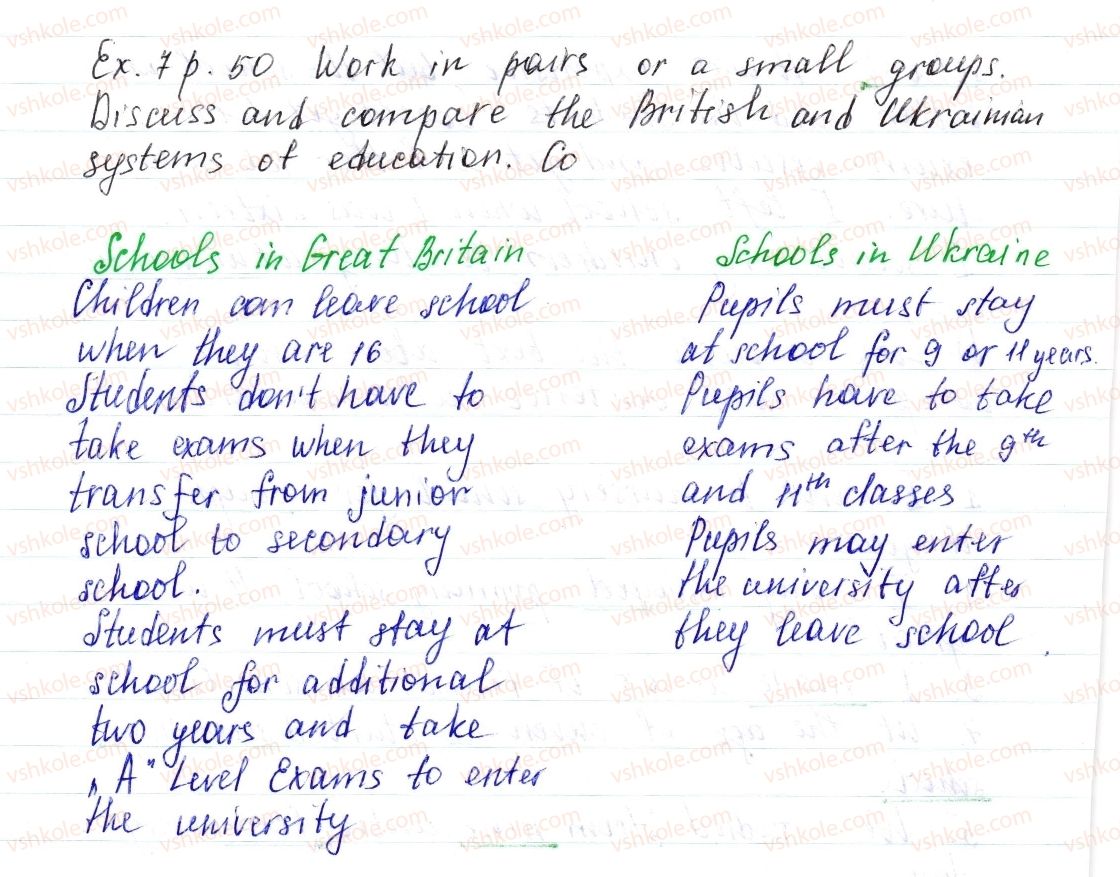 Ex. 7 p. 50 Work in pairs or a small groups.
Discuss and compare the British and Ukrainian
systems of education. Co
Schools in Great Britain
Children can leave school
when they are 16
Students don't have to
take exams when they
transfer from junior
school to secondary
school.
Students must stay at
school for additional
two years and take
„A" Level Exams to enter
the university
Schools in Ukraine
Pupils must stay
at school for 9 or 11 years.
Pupils have to take
exams after the 9th
and 11th classes
Pupils may enter
the university after
they leave school.